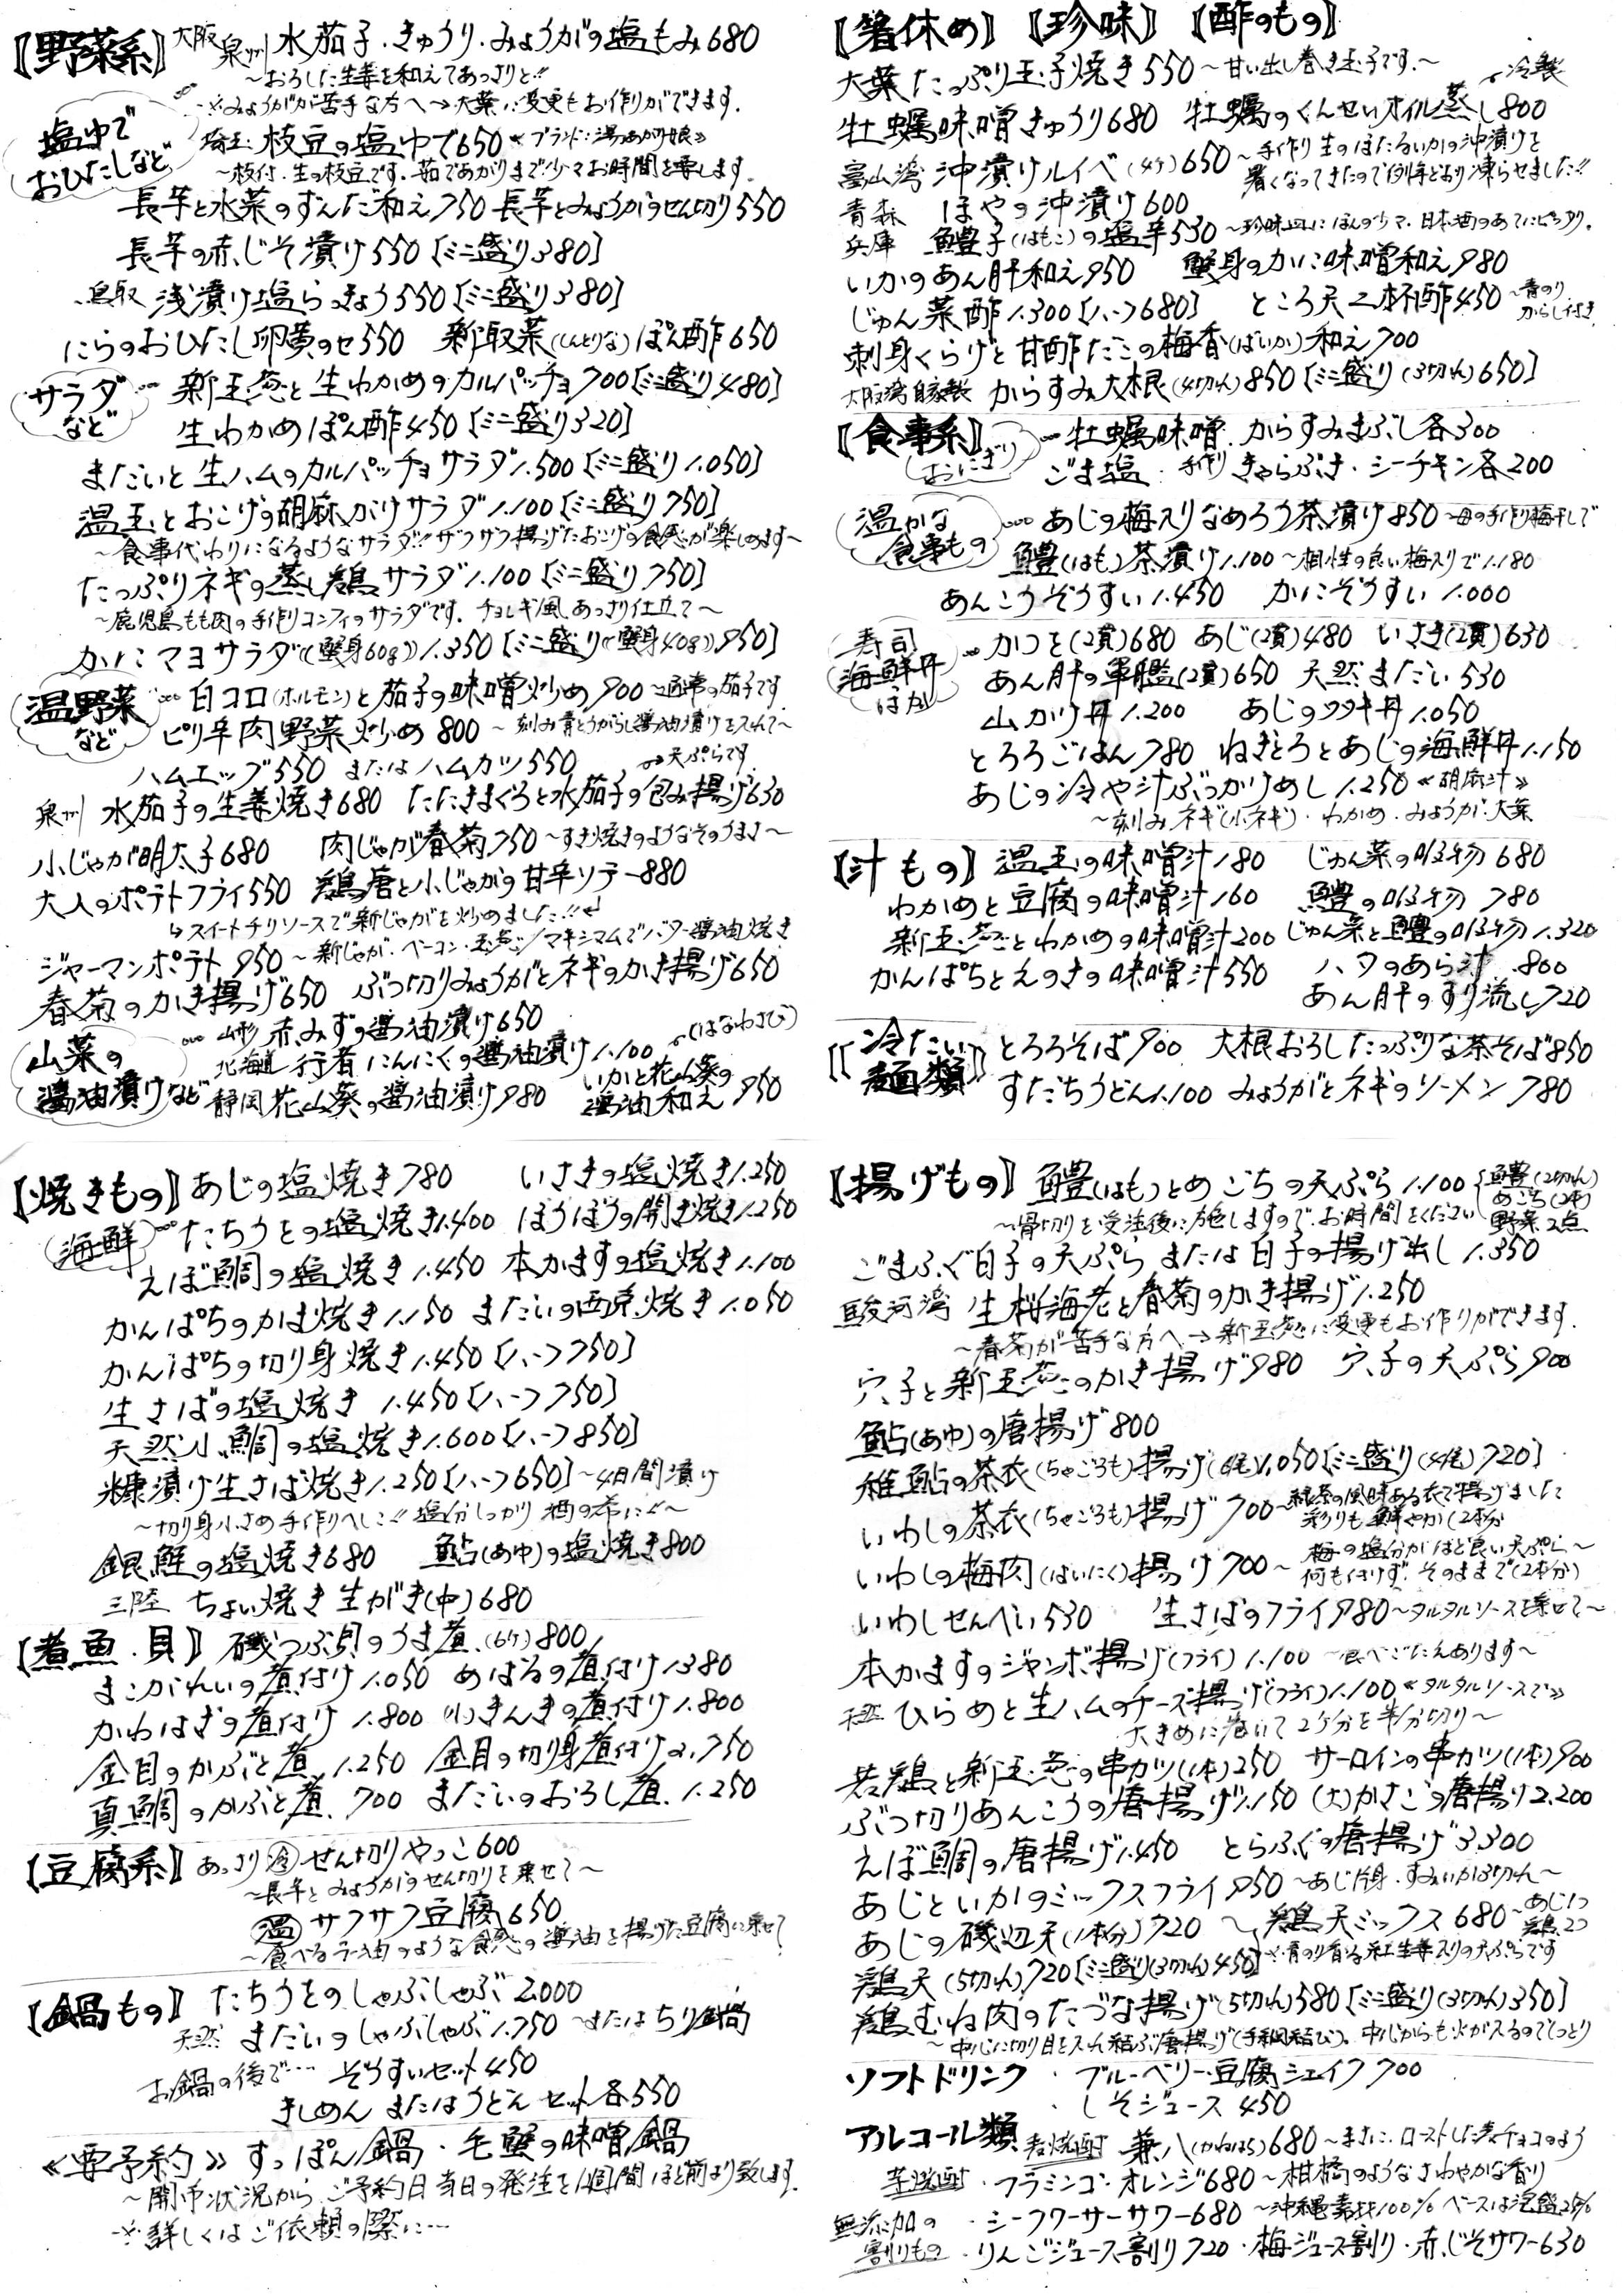 【野菜系】大阪 泉州 水茄子・きゅうり・みょうがの塩もみ680
～おろした生姜を和えてあっさりと!!
※みょうがが苦手な方へ→大葉に変更もお作りができます.
塩ゆで おひたしなど
埼玉 枝豆の塩ゆで650 《ブランド:湯あがり娘》
～枝付.生の枝豆です.茹であがりまで少々お時間を要します.
長芋と水菜のずんだ和え750 長芋とみょうがのせん切り550
長芋の赤じそ漬け550 [ミニ盛り380]
鳥取 浅漬け塩らっきょう550 [ミニ盛り380]
にらのおひたし卵黄のせ550 新取菜(しんとりな)ぽん酢650
サラダなど … 新玉葱と生わかめのカルパッチョ700 [ミニ盛り480]
生わかめぽん酢450 [ミニ盛り320]
まだいと生ハムのカルパッチョサラダ1.500 [ミニ盛り1.050]
温玉とおこげの胡麻がけサラダ1.100 [ミニ盛り750]
～食事代わりになるようなサラダ!!ザクザク揚げたおこげの食感が楽しめます～
たっぷりネギの蒸し鶏サラダ1.100 [ミニ盛り750]
～鹿児島もも肉の手作りコンフィのサラダです.チョレギ風あっさり仕立て～
かにマヨサラダ(蟹身60g)1.350 [ミニ盛り(蟹身40g)950]
温野菜など … 白コロ(ホルモン)と茄子の味噌炒め900～通常の茄子です
ピリ辛肉野菜炒め800～刻み青とうがらし醤油漬けを入れて～
ハムエッグ550 またはハムカツ550 →天ぷらです
泉州 水茄子の生姜焼き680 たたきまぐろと水茄子の包み揚げ630
小じゃが明太子680 肉じゃが春菊750～すき焼きのようなそのうまさ～
大人のポテトフライ550 鶏唐と小じゃがの甘辛ソテー880
↳スイートチリソースで新じゃがを炒めました!!↲
ジャーマンポテト950～新じゃが・ベーコン・玉葱/マキシマムでバター醤油焼き
春菊のかき揚げ650 ぶつ切りみょうがとネギのかき揚げ650
山菜の醤油漬けなど … 山形 赤みずの醤油漬け650
北海道 行者にんにくの醤油漬け1.100 (はなわさび)
静岡 花山葵の醤油漬け980 いかと花山葵の醤油和え950
【箸休め】【珍味】【酢のもの】
大葉たっぷり玉子焼き550～甘い出し巻き玉子です.～ 冷製
牡蠣味噌きゅうり680 牡蠣のくんせいオイル蒸し800
富山湾 沖漬けルイベ(4ケ)650～手作り生のほたるいかの沖漬けを
暑くなってきたので例年どおり凍らせました!!
青森 ほやの沖漬け600
兵庫 鱧子(はもこ)の塩辛530～珍味皿にほんの少々.日本酒のあてにピッタリ.
いかのあん肝和え950 蟹身のかに味噌和え980
じゅん菜酢1.300 [ハーフ680] ところ天二杯酢450～青のり からし付き
刺身くらげと甘酢だこの梅香(ばいか)和え700
大阪湾自家製 からすみ大根(4切れ)850 [ミニ盛り(3切れ)650]
【食事系】おにぎり … 牡蠣味噌.からすみまぶし各300
ごま塩・手作りきゃらぶき・シーチキン各200
温かな食事もの … あじの梅入りなめろう茶漬け850～母の手作り梅干しで
鱧(はも)茶漬け1.100～相性の良い梅入りで1.180
あんこうぞうすい1.450 かにぞうすい1.000
寿司 海鮮丼ほか … かつを(2貫)680 あじ(2貫)480 いさき(2貫)630
あん肝の軍艦(2貫)650 天然まだい530
山かけ丼1.200 あじのタタキ丼1.050
とろろごはん780 ねぎとろとあじの海鮮丼1.150
あじの冷や汁ぶっかけめし1.250《胡麻汁》
～刻みネギ(小ネギ)・わかめ・みょうが.大葉
【汁もの】温玉の味噌汁180 じゅん菜の吸物680
わかめと豆腐の味噌汁160 鱧の吸物780
新玉葱とわかめの味噌汁200 じゅん菜と鱧の吸物1.320
かんぱちとえのきの味噌汁550 ハタのあら汁800
あん肝のすり流し720
【冷たい麺類】とろろそば900 大根おろしたっぷりな茶そば850
すだちうどん1.100 みょうがとネギのソーメン780
【焼きもの】あじの塩焼き780 いさきの塩焼き1.250
海鮮 … たちうをの塩焼き1.400 ほうぼうの開き焼き1.250
えぼ鯛の塩焼き1.450 本かますの塩焼き1.100
かんぱちのかま焼き1.150 まだいの西京焼き1.050
かんぱちの切り身焼き1.450 [ハーフ750]
生さばの塩焼き 1.450 [ハーフ750]
天然小鯛の塩焼き1.600 [ハーフ850]
糠漬け生さば焼き1.250 [ハーフ650]～4日間漬け
～切り身小さめ手作りへしこ!!塩分しっかり酒の肴に!!～
銀鮭の塩焼き680 鮎(あゆ)の塩焼き800
三陸 ちょい焼き生がき(中)680
【煮魚.貝】磯つぶ貝のうま煮.(6ケ)800
まこがれいの煮付け1.050 めばるの煮付け1.380
かわはぎの煮付け1.800 (小)きんきの煮付け1.800
金目のかぶと煮.1.250 金目の切身煮付け2.750
真鯛のかぶと煮.700 まだいのおろし煮.1.250
【豆腐系】あっさり㊌せん切りやっこ600
～長芋とみょうがのせん切りを乗せて～
温 サクサク豆腐650
～食べるラー油のような食感の醤油を揚げた豆腐に乗せて
【鍋もの】たちうをのしゃぶしゃぶ2.000
天然 まだいのしゃぶしゃぶ1.750～またはちり鍋
お鍋の後で…ぞうすいセット450
きしめんまたはうどんセット各550
《要予約》すっぽん鍋・毛蟹の味噌鍋
～開市状況からご予約日当日の発注を1週間ほど前より致します.
※詳しくはご依頼の際に…
【揚げもの】鱧(はも)とめごちの天ぷら1.100 {鱧(2切れ) めごち(2本) 野菜2点
～骨切りを受注後に施しますので.お時間をください
ごまふぐ白子の天ぷらまたは白子の揚げ出し1.350
駿河湾 生桜海老と春菊のかき揚げ1.250
～春菊が苦手な方へ→新玉葱に変更もお作りができます.
穴子と新玉葱のかき揚げ980 穴子の天ぷら900
鮎(あゆ)の唐揚げ800
稚鮎の茶衣(ちゃごろも)揚げ(6尾)1.050 [ミニ盛り(4尾)720]
いわしの茶衣(ちゃごろも)揚げ700～緑茶の風味ある衣で揚げました 彩りも鮮やか(2本分
いわしの梅肉(ばいにく)揚げ700～梅の塩分がほど良い天ぷら～ 何も付けず.そのままで(2本分)
いわしせんべい530 生さばのフライ980～タルタルソースを乗せて～
本かますのジャンボ揚げ(フライ)1.100～食べごたえあります～
天然 ひらめと生ハムのチーズ揚げ(フライ)1.100《タルタルソースで》
大きめに巻いて2ケ分を半分切り～
若鶏と新玉葱の串カツ(1本)250 サーロインの串カツ(1本)900
ぶつ切りあんこうの唐揚げ1.150 (大)かさごの唐揚げ2.200
えぼ鯛の唐揚げ1.450 とらふぐの唐揚げ3.300
あじといかのミックスフライ950～あじ片身.すみいか3切れ～
あじの磯辺天(1本分)720～鶏天ミックス680～あじ1つ 鶏2つ
鶏天(5切れ)720 [ミニ盛り(3切れ)450] ※青のり香る紅生姜入りの天ぷらです
鶏むね肉のたづな揚げ(5切れ)580 [ミニ盛り(3切れ)350]
～中心に切り目を入れ結ぶ唐揚げ(手綱結び).中心からも火が入るのでしっとり
ソフトドリンク・ブルーベリー豆腐シェイク700
・しそジュース450
アルコール類 麦焼酎 兼八(かねはち)680～まさに.ローストした麦チョコのよう
芋焼酎・フラミンゴオレンジ680～柑橘のようなさわやかな香り
無添加の割りもの・シークワーサーサワー680～沖縄素材100% ベースは泡盛25%
・りんごジュース割り720・梅ジュース割り・赤じそサワー630